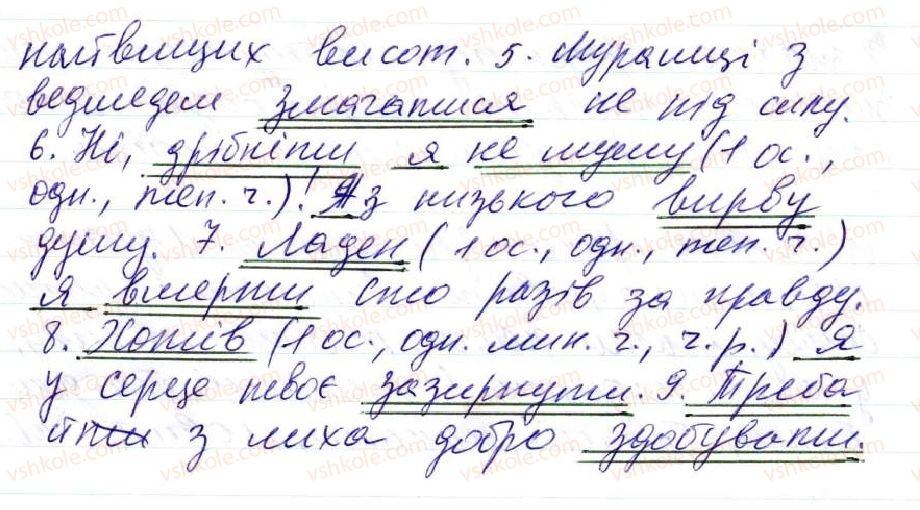 найвищих висот. 5. Мурашиці з
ведмедем змагатися не під силу.
6. Ні, дрібніти я не мушу (1 ос.,
одн., теп. ч.)! Я з низького вирву
душу. 7. Ладен (1 ос., одн., теп. ч.)
я вмерти сто разів за правду.
8. Хотів (1 ос., одн. мин. ч., ч. р.) я
у серце твоє зазирнути. 9. Треба
з лиха добро здобувати.